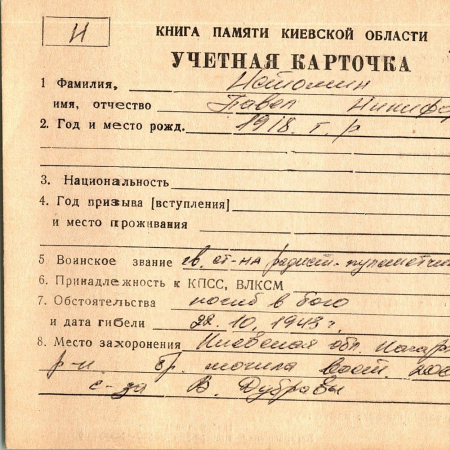 И
КНИГА ПАМЯТИ КИЕВСКОЙ ОБЛАСТИ
УЧЕТНАЯ КАРТОЧКА
1 Фамилия, Истомин
имя, отчество Павел Никифо
2. Год и место рожд. 1918 г. р
3. Национальность
4. Год призыва [вступления]
и место проживания
5 Воинское звание гв. ст-на радист-пулеметчи
6. Принадлежность к КПСС, ВЛКСМ
7. Обстоятельства погиб в бою
и дата гибели 22.10.1943 г.
8. Место захоронения Киевская обл.
р-н. бр. могила
с-за В. Дубравы